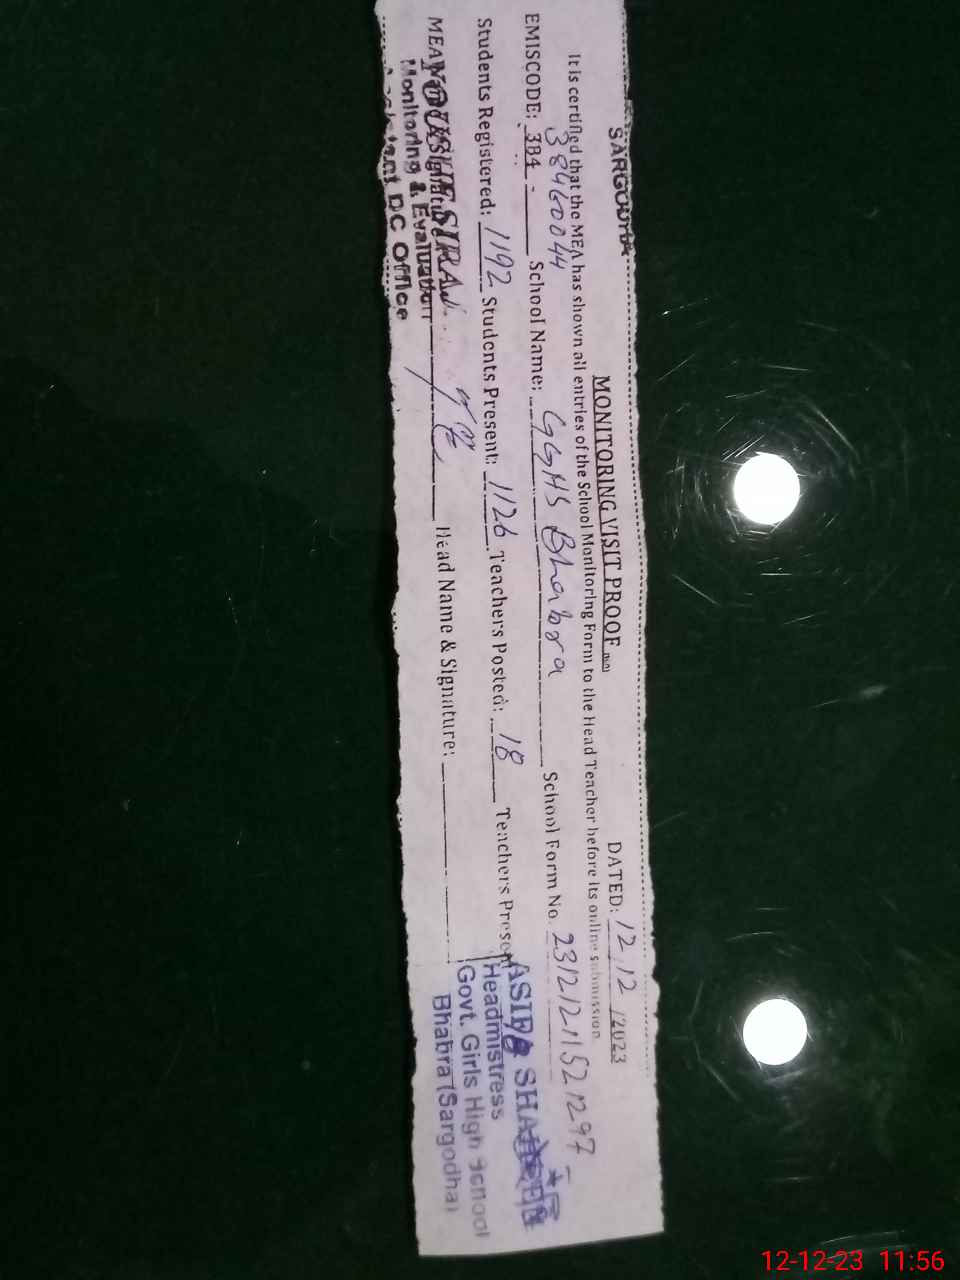 SARGODHA
MONITORING VISIT PROOF
DATED: 12/12/2023
It is certified that the MEA has shown all entries of the School Monitoring Form to the Head Teacher before its online submission
38460044
EMISCODE: 384 - School Name: GGHS Bhabra School Form No. 23121211521297
Students Registered: 1192 Students Present: 1126 Teachers Posted: 18 Teachers Present
MEA Head Name & Signature:
Monitoring & Evaluation
Assistant DC Office
ASIFA SHAHEEN
Headmistress
Govt. Girls High School
Bhabra (Sargodha)
12-12-23 11:56